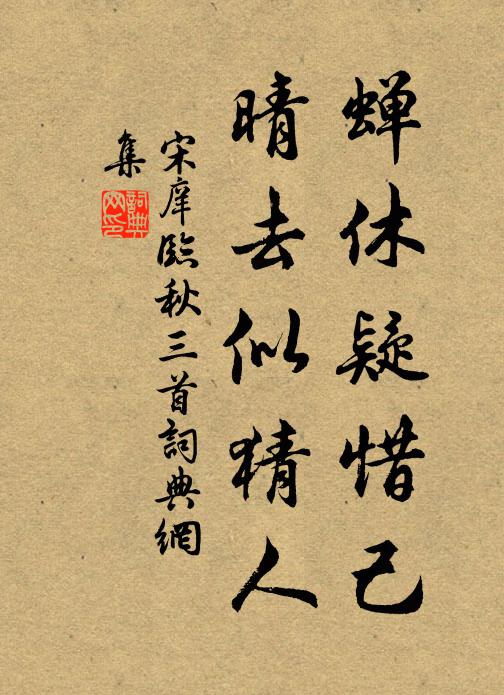 蝉休疑惜己
晴去似猜人
宋庠臨秋三首詞典網
集
詞典网印